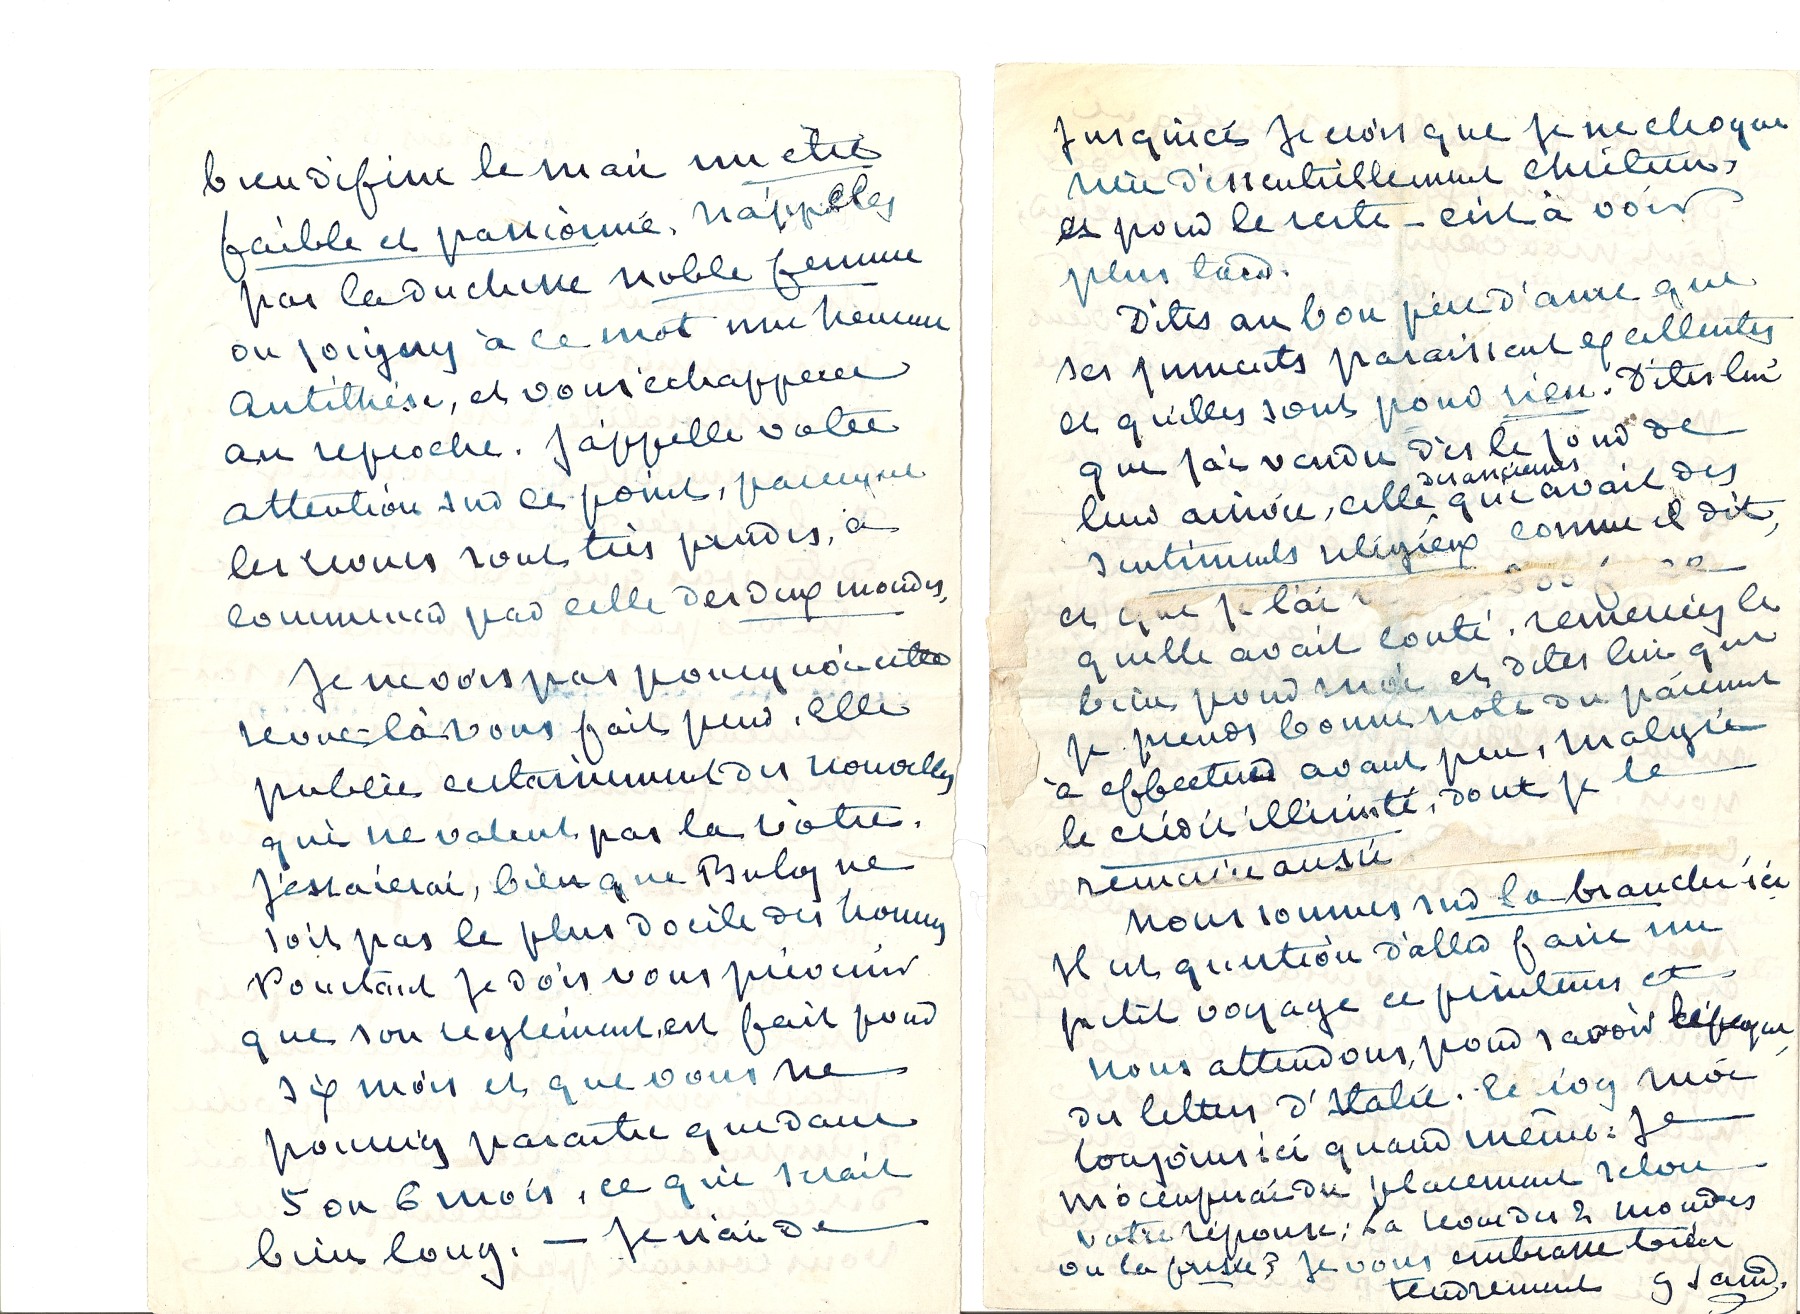 bien définir le mari un être
faible et passionné. N'appelez
pas la duchesse noble femme
ou joignez à ce mot une heureuse
antithèse, et vous échapperez
au reproche. J'appelle votre
attention sur ce point, parce que
les revues sont très prudes, à
commencer par celle des deux mondes.
Je ne vois pas pourquoi cette
revue-là vous fait peur. Elle
publie certainement des nouvelles
qui ne valent pas la vôtre.
J'essaierai, bien que Buloz ne
soit pas le plus docile des hommes
Pourtant je dois vous prévenir
que son règlement est fait pour
six mois et que vous ne
pourriez paraitre que dans
5 ou 6 mois, ce qui serait
bien long. — Je n'ai de
Jusqu'ici je crois que je ne choque
rien d'essentiellement chrétien,
et pour le reste — c'est à voir
plus tard.
Dites au bon père d'
ses juments paraissent excellentes
et qu'elles sont pour rien. Dites lui
que j'ai vendu dès le jour de
leur arrivée, celle qui avait des
sentiments religieux comme il dit,
et que je l'ai
qu'elle avait couté. remerciez le
bien pour moi et dites lui que
je prends bonne note du paiement
à effectuer avant peu, malgré
le crédit illimité, dont je le
remercie aussi
Nous sommes sur la branche ici
Il est question d'aller faire un
petit voyage ce printems et
nous attendons, pour savoir l'époque,
des lettres d'Italie.
toujours ici quand même. Je
m'occuperai du placement selon
votre réponse; La revue des 2 mondes
ou la presse? Je vous embrasse bien
tendrement G Sand.